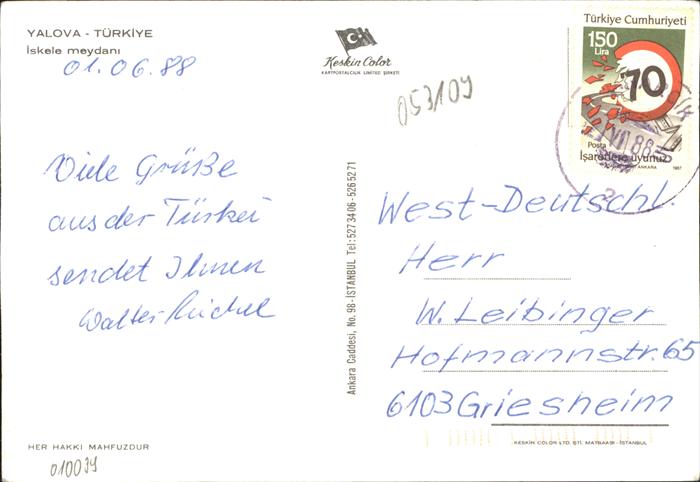 YALOVA - TÜRKİYE
İskele meydanı
01.06.88
Viele Grüße
aus der Türkei
sendet Ihnen
Walter
HER HAKKI MAHFUZDUR
010034
Keskin Color
KARTPOSTALCILIK LİMİTED ŞİRKETİ
053109
Ankara Caddesi, No. 98-İSTANBUL Tel: 5273406-5265271
Türkiye Cumhuriyeti
150
Lira
70
Posta
İşaretlere uyunuz
ANKARA 1987
88
West-Deutschl.
Herr
W. Leibinger
Hofmannstr. 65
6103 Griesheim
KESKİN COLOR LTD. ŞTİ. MATBAASI - İSTANBUL